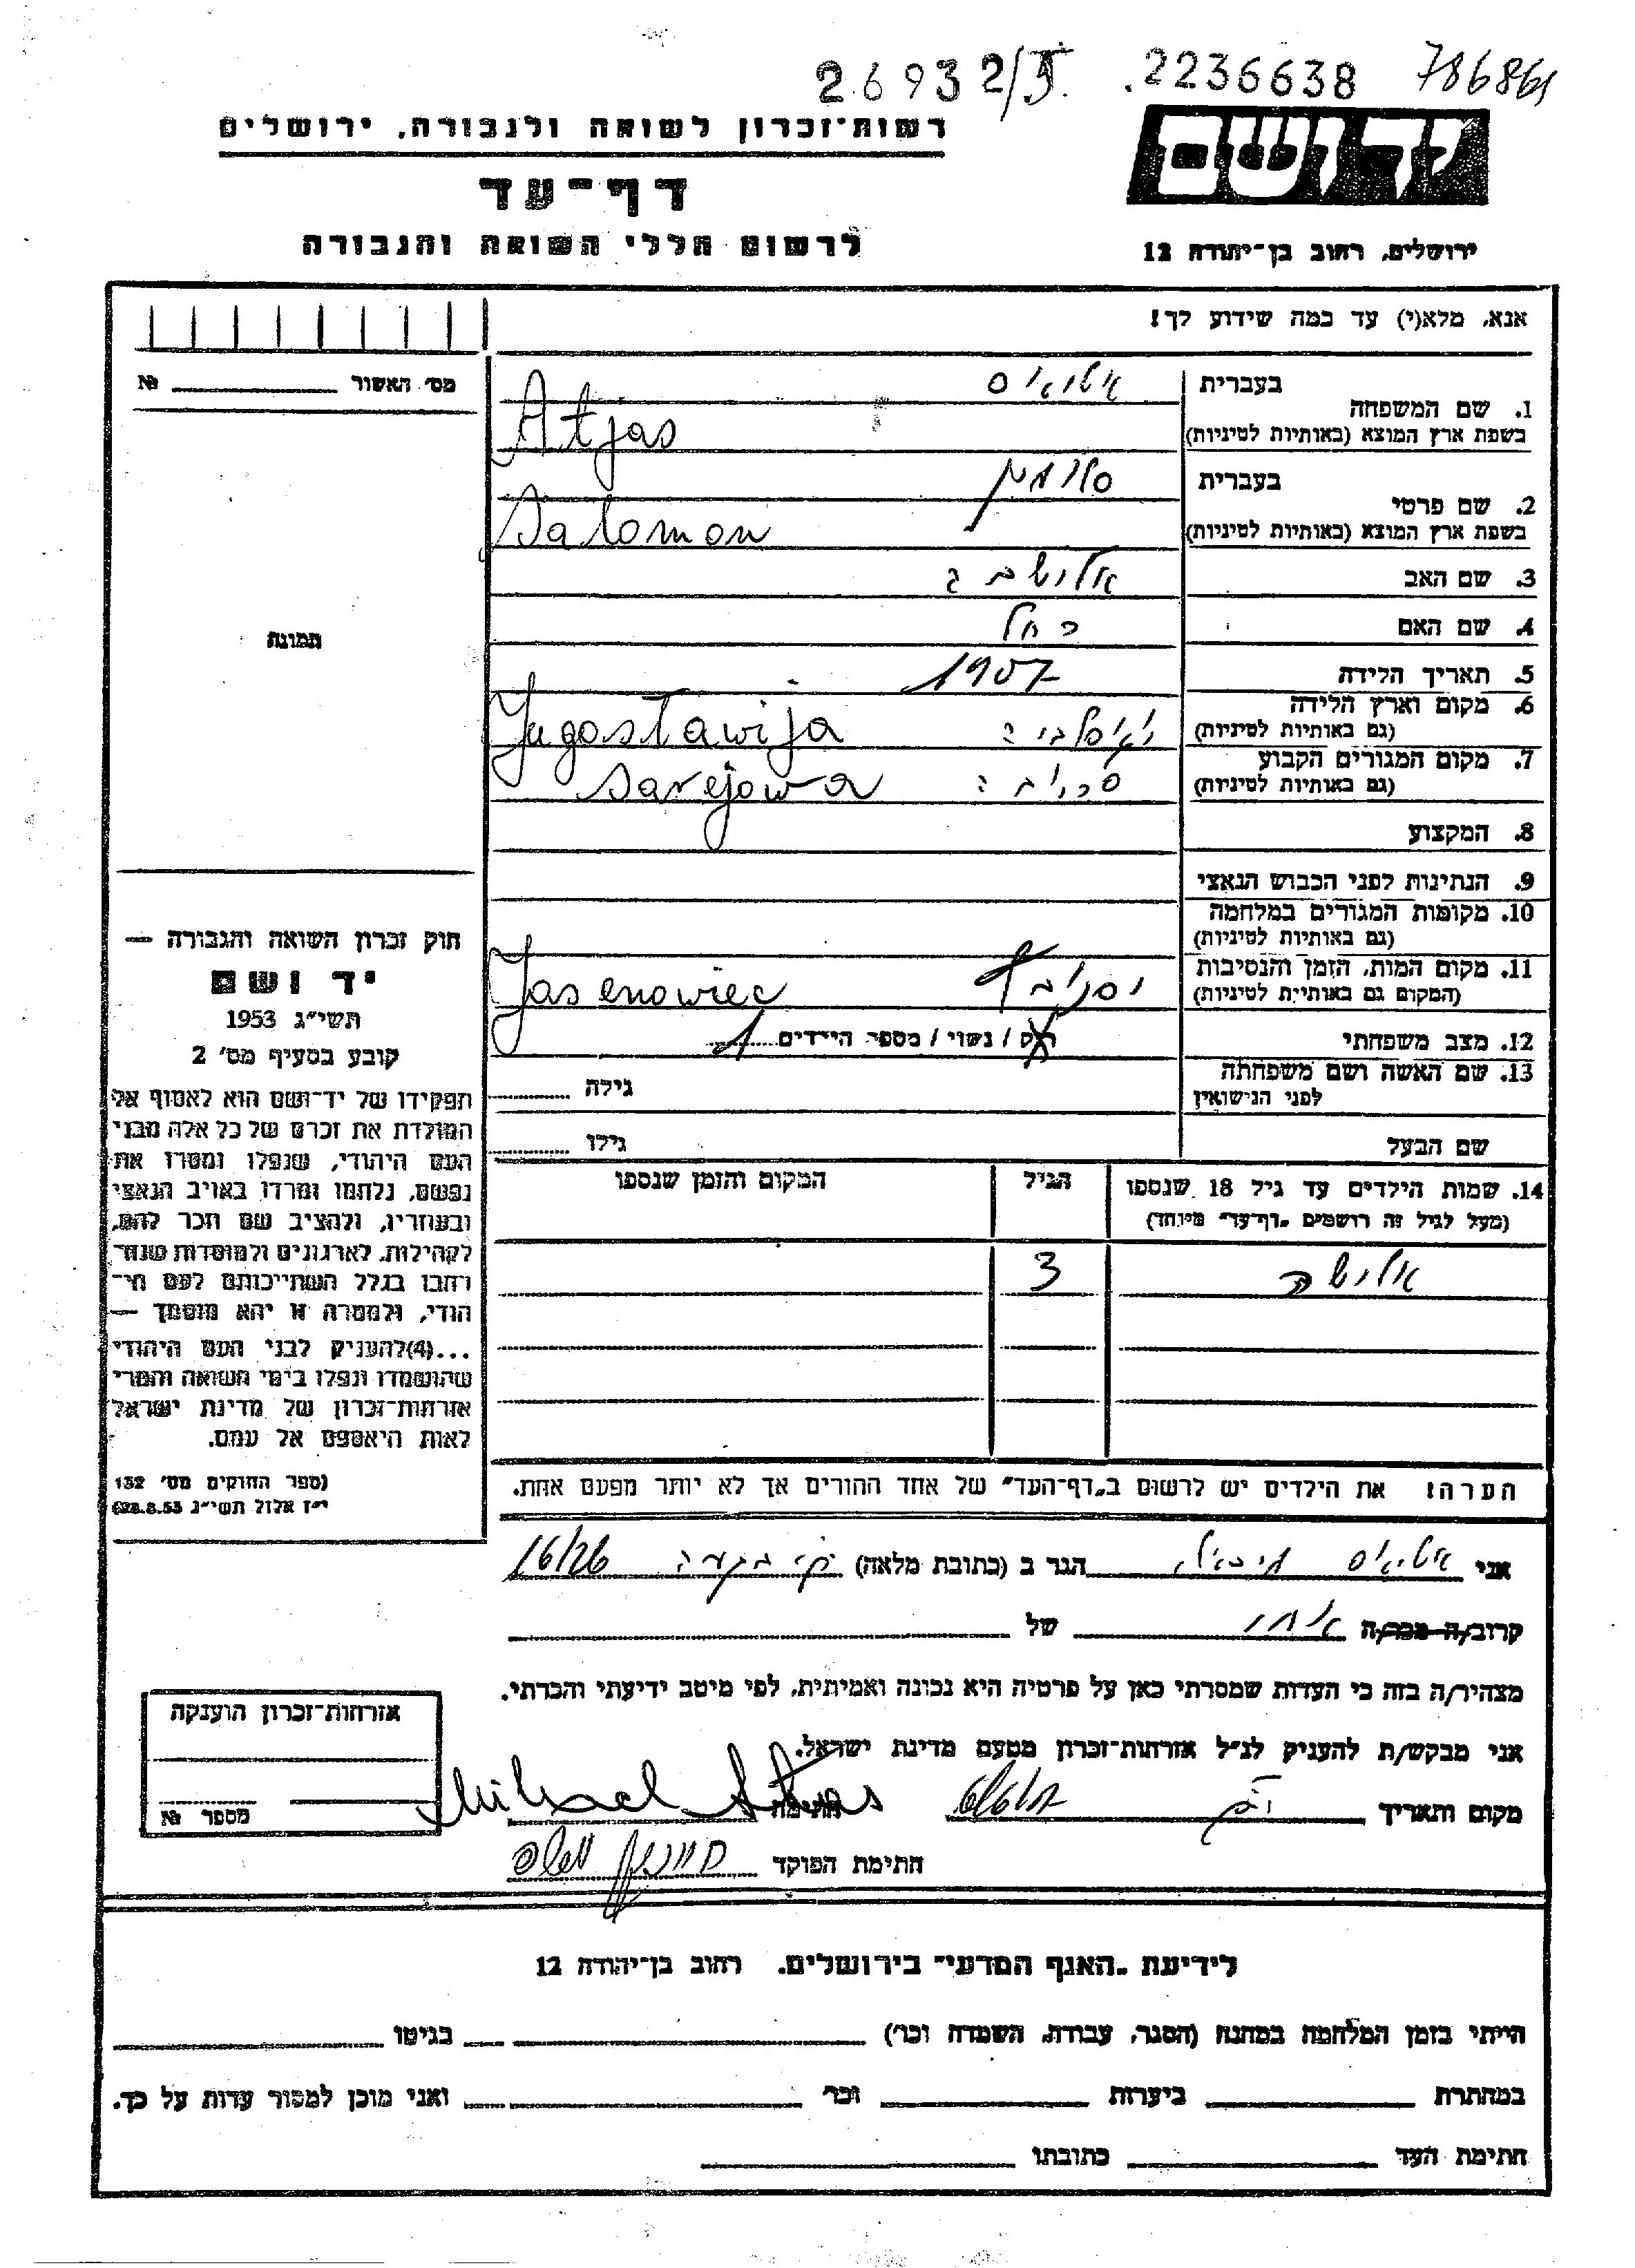 26932/5. 2236638 786861
יד ושם
רשות-זכרון לשואה ולגבורה, ירושלים
דף-עד
לרשום חללי השואה והגבורה
ירושלים, רחוב בן-יהודה 12
אנא, מלא(י) עד כמה שידוע לך!
מס' האשור № 
1. שם המשפחה
בעברית אטיאס
בשפת ארץ המוצא (באותיות לטיניות) Atjas
2. שם פרטי
בעברית סלומון
בשפת ארץ המוצא (באותיות לטיניות) Salomon
3. שם האב
4. שם האם רחל
5. תאריך הלידה 1907
6. מקום וארץ הלידה
(גם באותיות לטיניות) Jugoslawija
7. מקום המגורים הקבוע
(גם באותיות לטיניות) Sarejowa
8. המקצוע
9. הנתינות לפני הכבוש הנאצי
10. מקומות המגורים במלחמה
(גם באותיות לטיניות)
11. מקום המות, הזמן והנסיבות
(המקום גם באותיות לטיניות) Jasenowiec
12. מצב משפחתי רוק / נשוי / מספר הילדים 1
13. שם האשה ושם משפחתה
לפני הנישואין גילה
שם הבעל גילו
תמונה
חוק זכרון השואה והגבורה —
יד ושם
תשי"ג 1953
קובע בסעיף מס' 2
תפקידו של יד-ושם הוא לאסוף אל
המולדת את זכרם של כל אלה מבני
העם היהודי, שנפלו ומסרו את
נפשם, נלחמו ומרדו באויב הנאצי
ובעוזריו, ולהציב שם וזכר להם,
לקהילות, לארגונים ולמוסדות שנח-
רחבו בגלל השתייכותם לעם הי-
הודי, ולמטרה זו יהא מוסמך —
...(4) להעניק לבני העם היהודי
שהושמדו ונפלו בימי השואה והמרי
אזרחות-זכרון של מדינת ישראל
לאות היאספם אל עמם.
(ספר החוקים מס' 132
י"ז אלול תשי"ג 28.8.53)
14. שמות הילדים עד גיל 18 שנספו הגיל המקום והזמן שנספו
(מעל לגיל זה רושמים "דף-עד" מיוחד)
3
הערה! את הילדים יש לרשום ב"דף-העד" של אחד ההורים אך לא יותר מפעם אחת.
אני אטיאס מיכאל הגר ב (כתובת מלאה) 16/26
קרוב/ה מכר/ה של
מצהיר/ה בזה כי העדות שמסרתי כאן על פרטיה היא נכונה ואמיתית, לפי מיטב ידיעתי והכרתי.
אני מבקש/ת להעניק לנ"ל אזרחות-זכרון מטעם מדינת ישראל.
מקום ותאריך חתימה Mihael Atjas
חתימת הפוקד
אזרחות-זכרון הוענקה
מספר №
לידיעת "האגף המדעי" בירושלים. רחוב בן-יהודה 12
הייתי בזמן המלחמה במחנה (הסגר, עבודה, השמדה וכו') בגיטו
במחתרת ביערות וכו' ואני מוכן למסור עדות על כך.
חתימת העד כתובתו